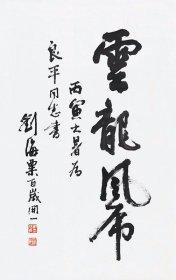 雲龍風虎
丙寅大暑為
良平同志書
劉海粟百歲開一